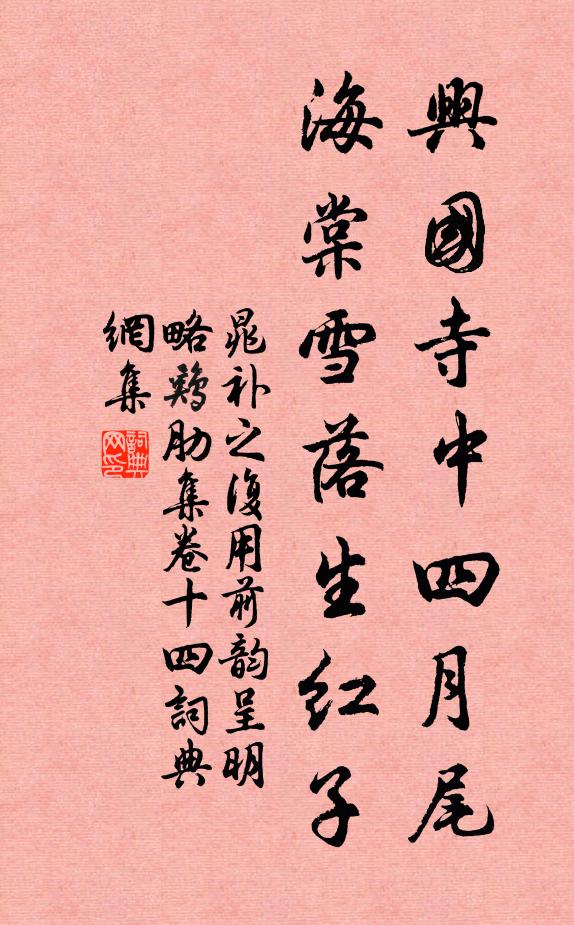 興國寺中四月尾
海棠雪落生紅子
晁補之復用前韵呈明
略鷄肋集卷十四詞典
網集
詞典
网印